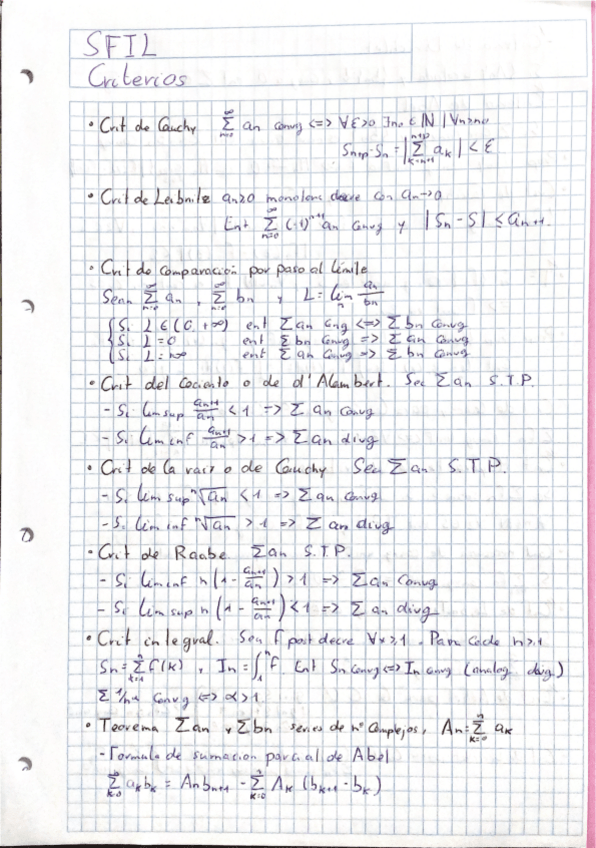 SFIL
Criterios
• Crit de Cauchy ∑_{n=0}^{∞} an convg <=> ∀ε>0 ∃n₀ ∈ ℕ | ∀n>n₀
S_{n+p}-S_n = |∑_{k=n+1}^{n+p} a_k| < ε
• Crit de Leibnitz an≥0 monotona decre con an→0
Ent ∑_{n=0}^{∞} (-1)^{n+1} an Convg y |S_n - S| ≤ a_{n+1}.
• Crit de comparación por paso al límite
Sean ∑_{n=0}^{∞} an , ∑_{n=0}^{∞} bn y L = lim_n an/bn
Si L ∈ (0, +∞) ent ∑an Cng <=> ∑bn Convg
Si L = 0 ent ∑bn Convg => ∑an Convg
Si L = +∞ ent ∑an Convg => ∑bn Convg
• Crit del Cociente o de d'Alambert. Sea ∑an S.T.P.
- Si lim sup a_{n+1}/a_n < 1 => ∑an Convg
- Si lim inf a_{n+1}/a_n > 1 => ∑an divg
• Crit de la raiz o de Cauchy Sea ∑an S.T.P.
- Si lim sup ⁿ√an < 1 => ∑an Convg
- Si lim inf ⁿ√an > 1 => ∑an divg
• Crit de Raabe ∑an S.T.P.
- Si lim inf n(1 - a_{n+1}/a_n) > 1 => ∑an Convg
- Si lim sup n(1 - a_{n+1}/a_n) < 1 => ∑an divg
• Crit integral. Sea f post decre ∀x≥1. Para cada n≥1
Sn = ∑_{k=1}^{n} f(k) , In = ∫_1^n f. Ent Sn Convg <=> In convg (analog divg)
∑ 1/n^α Convg <=> α>1
• Teorema ∑an y ∑bn series de nº Complejos, An = ∑_{k=0}^{n} a_k
- Formula de sumacion parcial de Abel
∑_{k=0}^{n} a_k b_k = An b_{n+1} - ∑_{k=0}^{n} A_k (b_{k+1} - b_k)